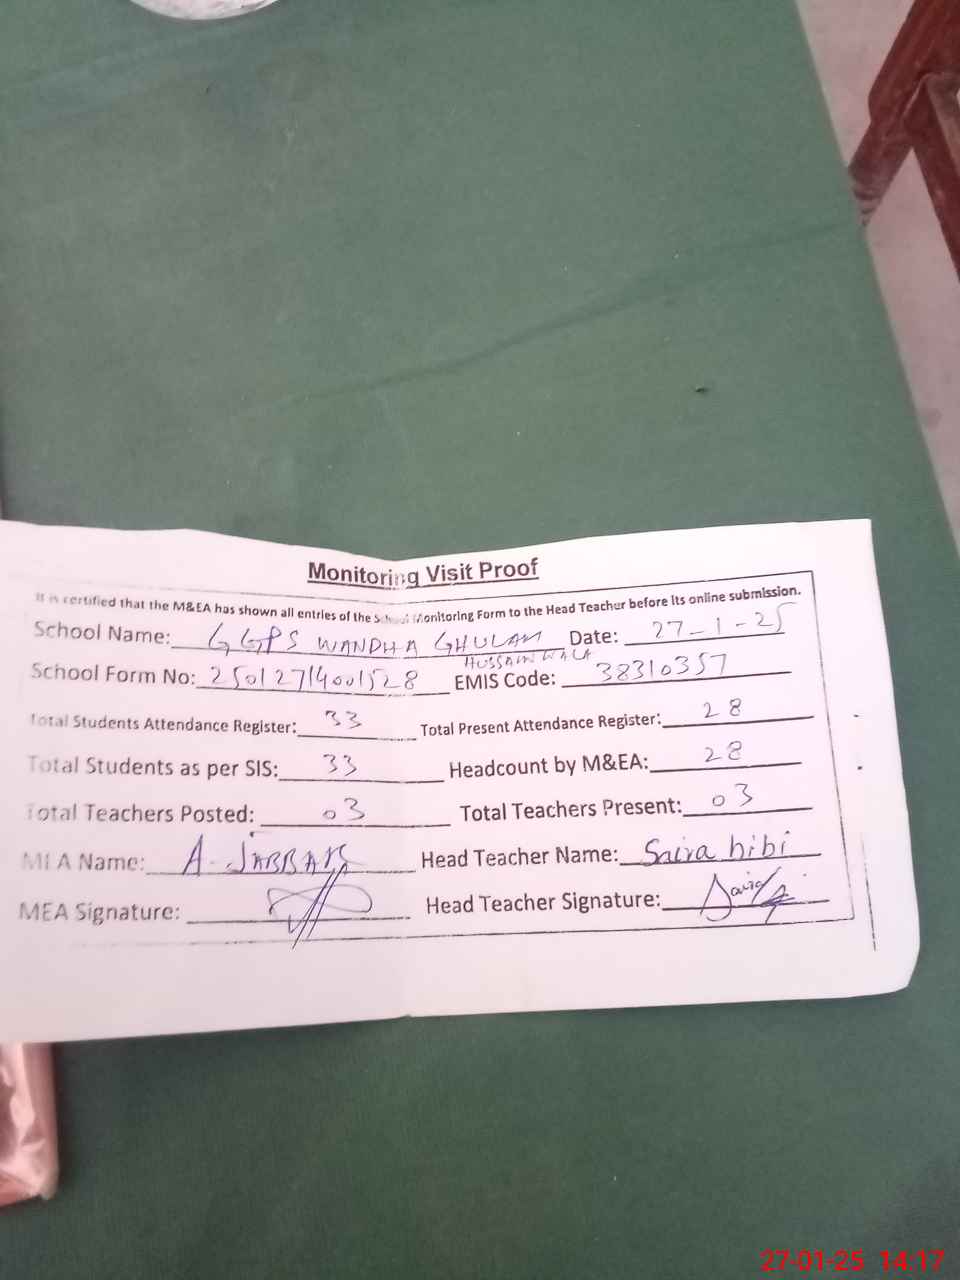 Monitoring Visit Proof
It is certified that the M&EA has shown all entries of the School Monitoring Form to the Head Teacher before its online submission.
School Name: GGPS WANDHA GHULAM HUSSAIN WALA Date: 27-1-25
School Form No: 25012714001528 EMIS Code: 38310357
Total Students Attendance Register: 33 Total Present Attendance Register: 28
Total Students as per SIS: 33 Headcount by M&EA: 28
Total Teachers Posted: 03 Total Teachers Present: 03
MEA Name: A. JABBAR Head Teacher Name: Saira bibi
MEA Signature: Head Teacher Signature: Saira
27-01-25 14:17